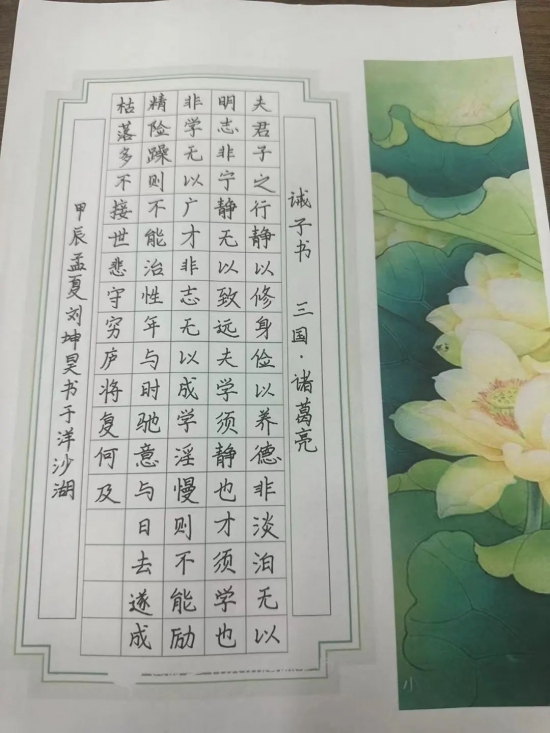 诫子书 三国·诸葛亮
夫君子之行静以修身俭以养德非淡泊无以
明志非宁静无以致远夫学须静也才须学也
非学无以广才非志无以成学淫慢则不能励
精险躁则不能治性年与时驰意与日去遂成
枯落多不接世悲守穷庐将复何及
甲辰孟夏刘坤昊书于洋沙湖
小